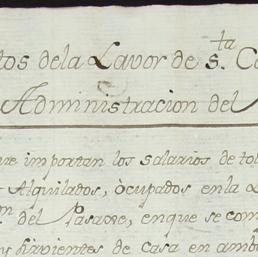 tos dela Lavor de s.ta Ca
Administracion del
ue importan los salarios de to
Alquilados, òcupados enla
del Pasave, enque se com
y sirvientes de Casa en amb